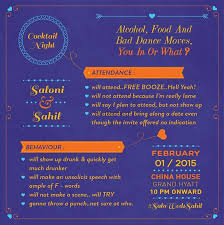 Cocktail
Night
Alcohol, Food And
Bad Dance Moves,
You In Or What?
Saloni
&
Sahil
ATTENDANCE :
will attend..FREE BOOZE..Hell Yeah!
will not attend because I'm really lame
will say I plan to attend, but not show up
will attend and bring along a date even
though the invite offered no indication
BEHAVIOUR :
will show up drunk & quickly get
much drunker
will make an unsolicited speech with
ample of F - words
will not make a scene.. will TRY
ganna throw a punch..not sure at who.
FEBRUARY
01 / 2015
CHINA HOUSE
GRAND HYATT
10 PM ONWARD